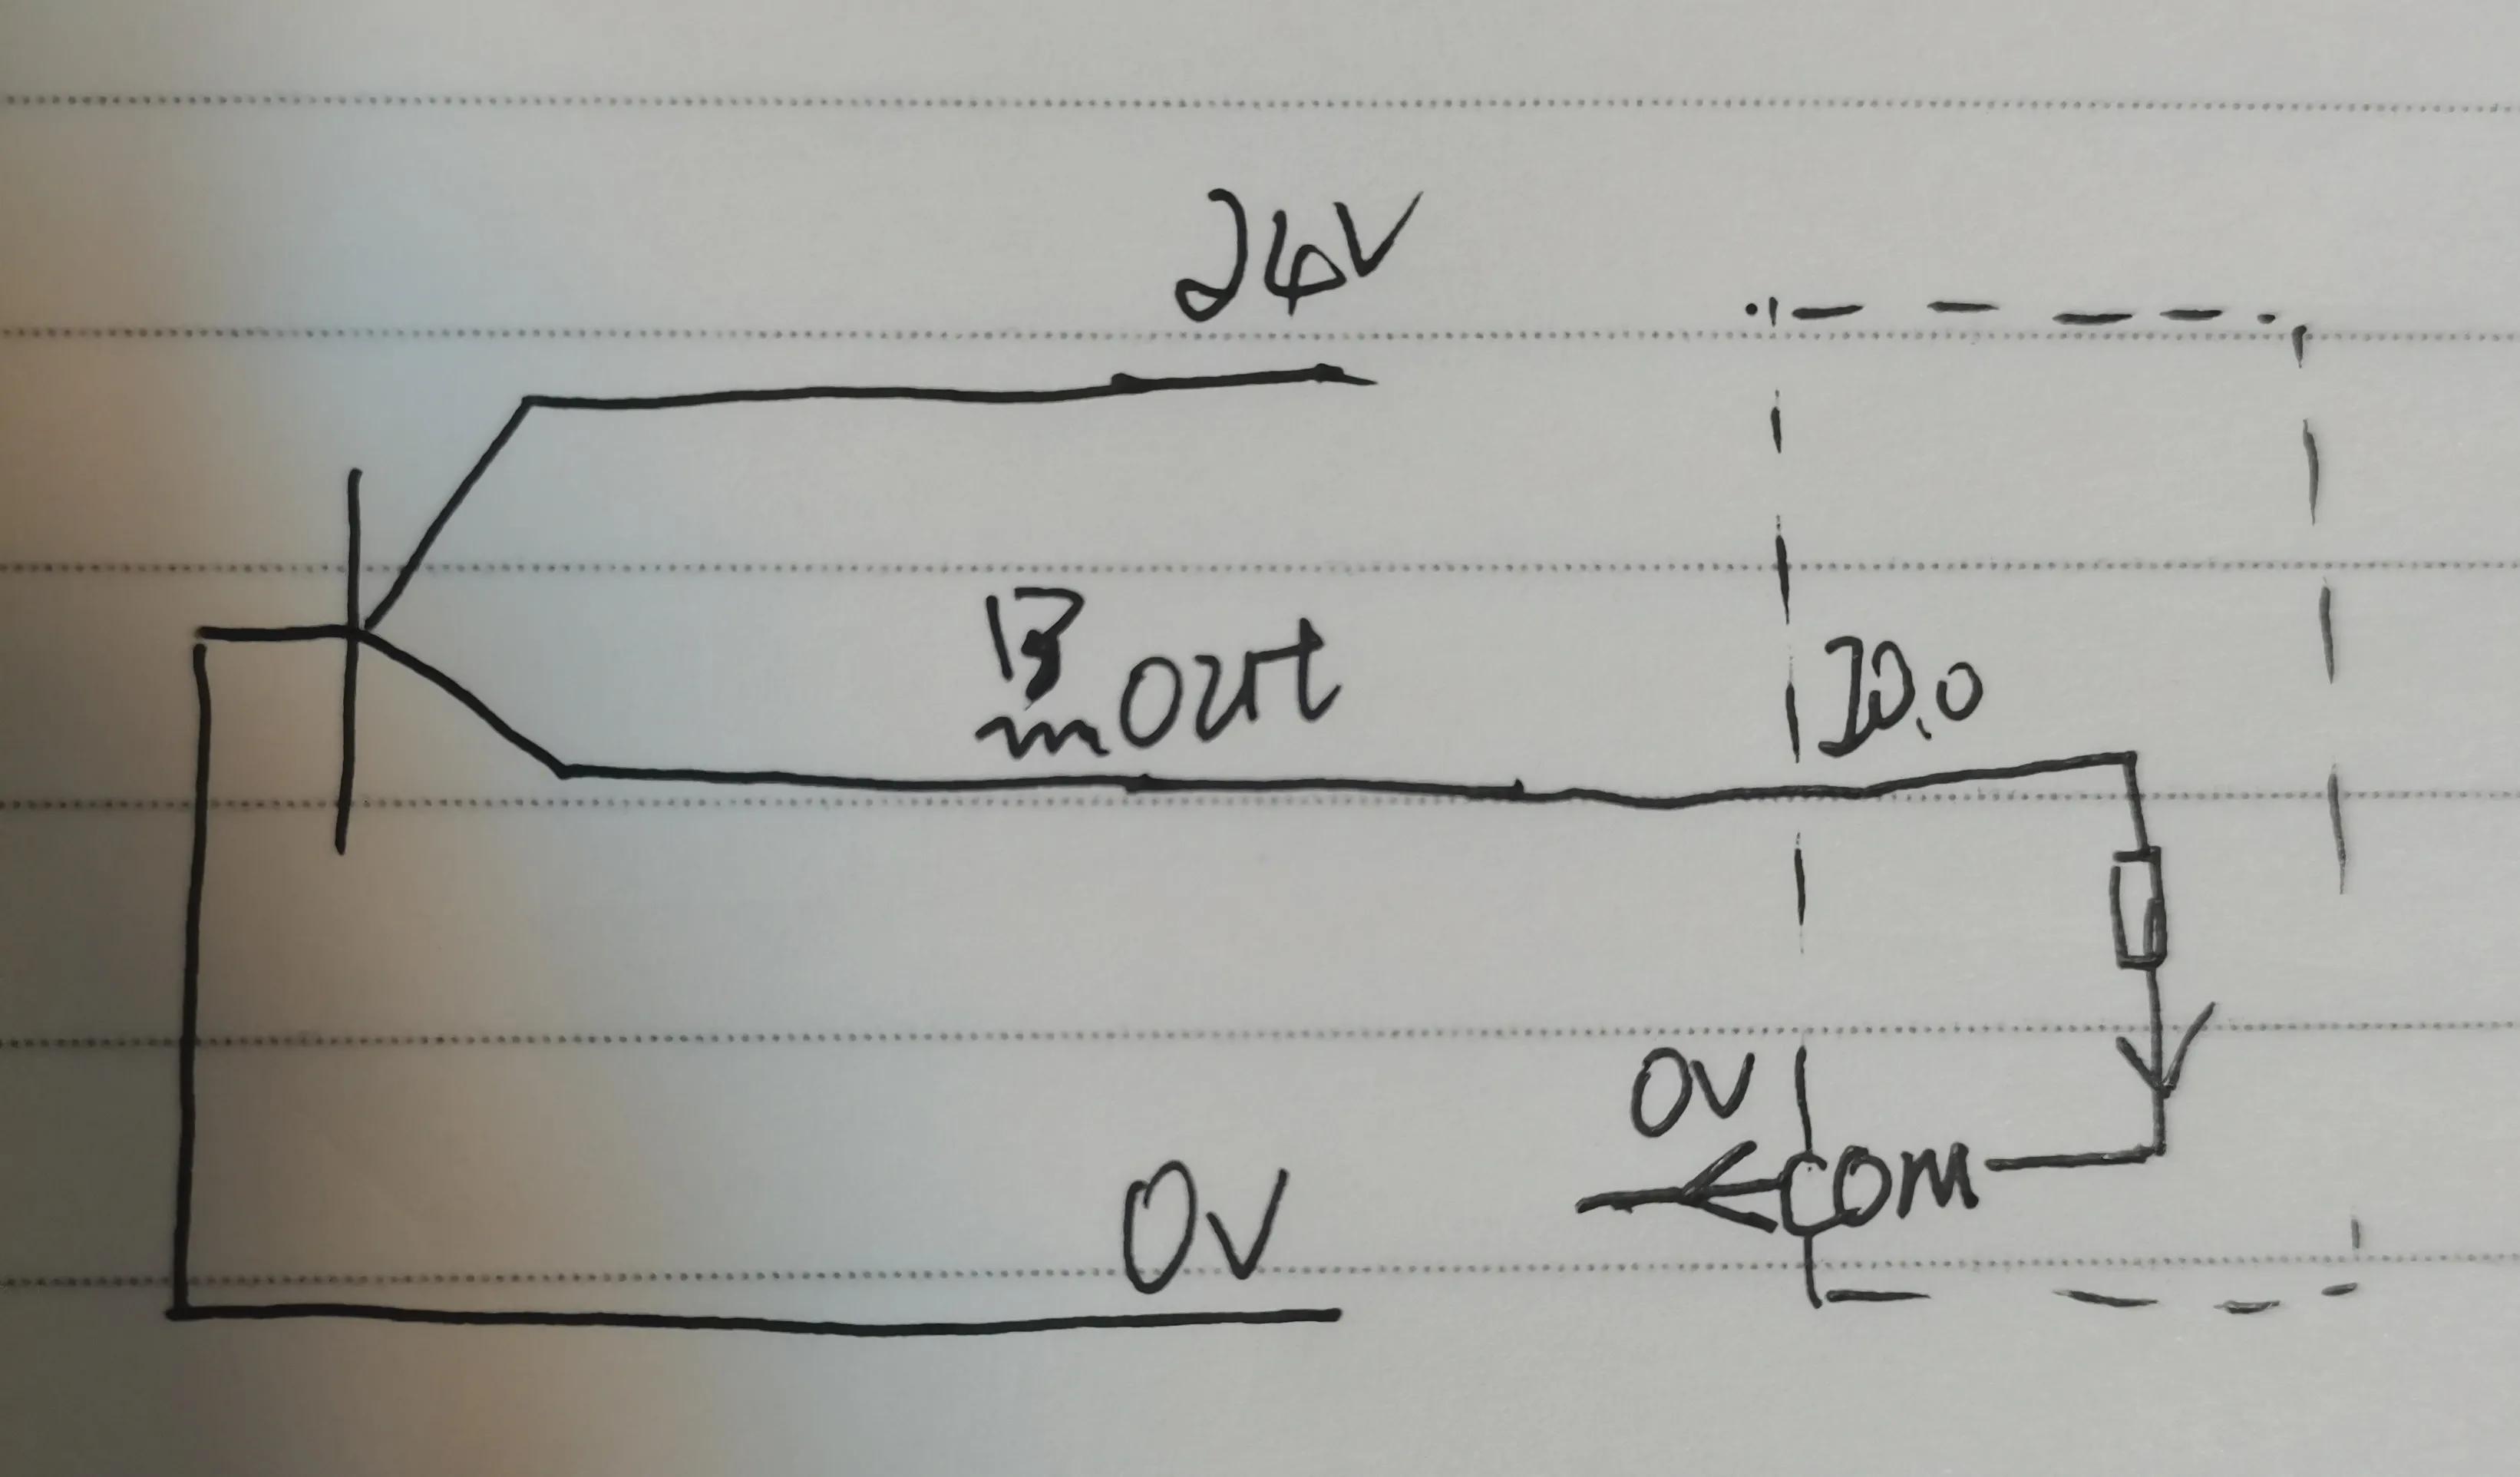 24V
out
I0.0
0V
COM
0V